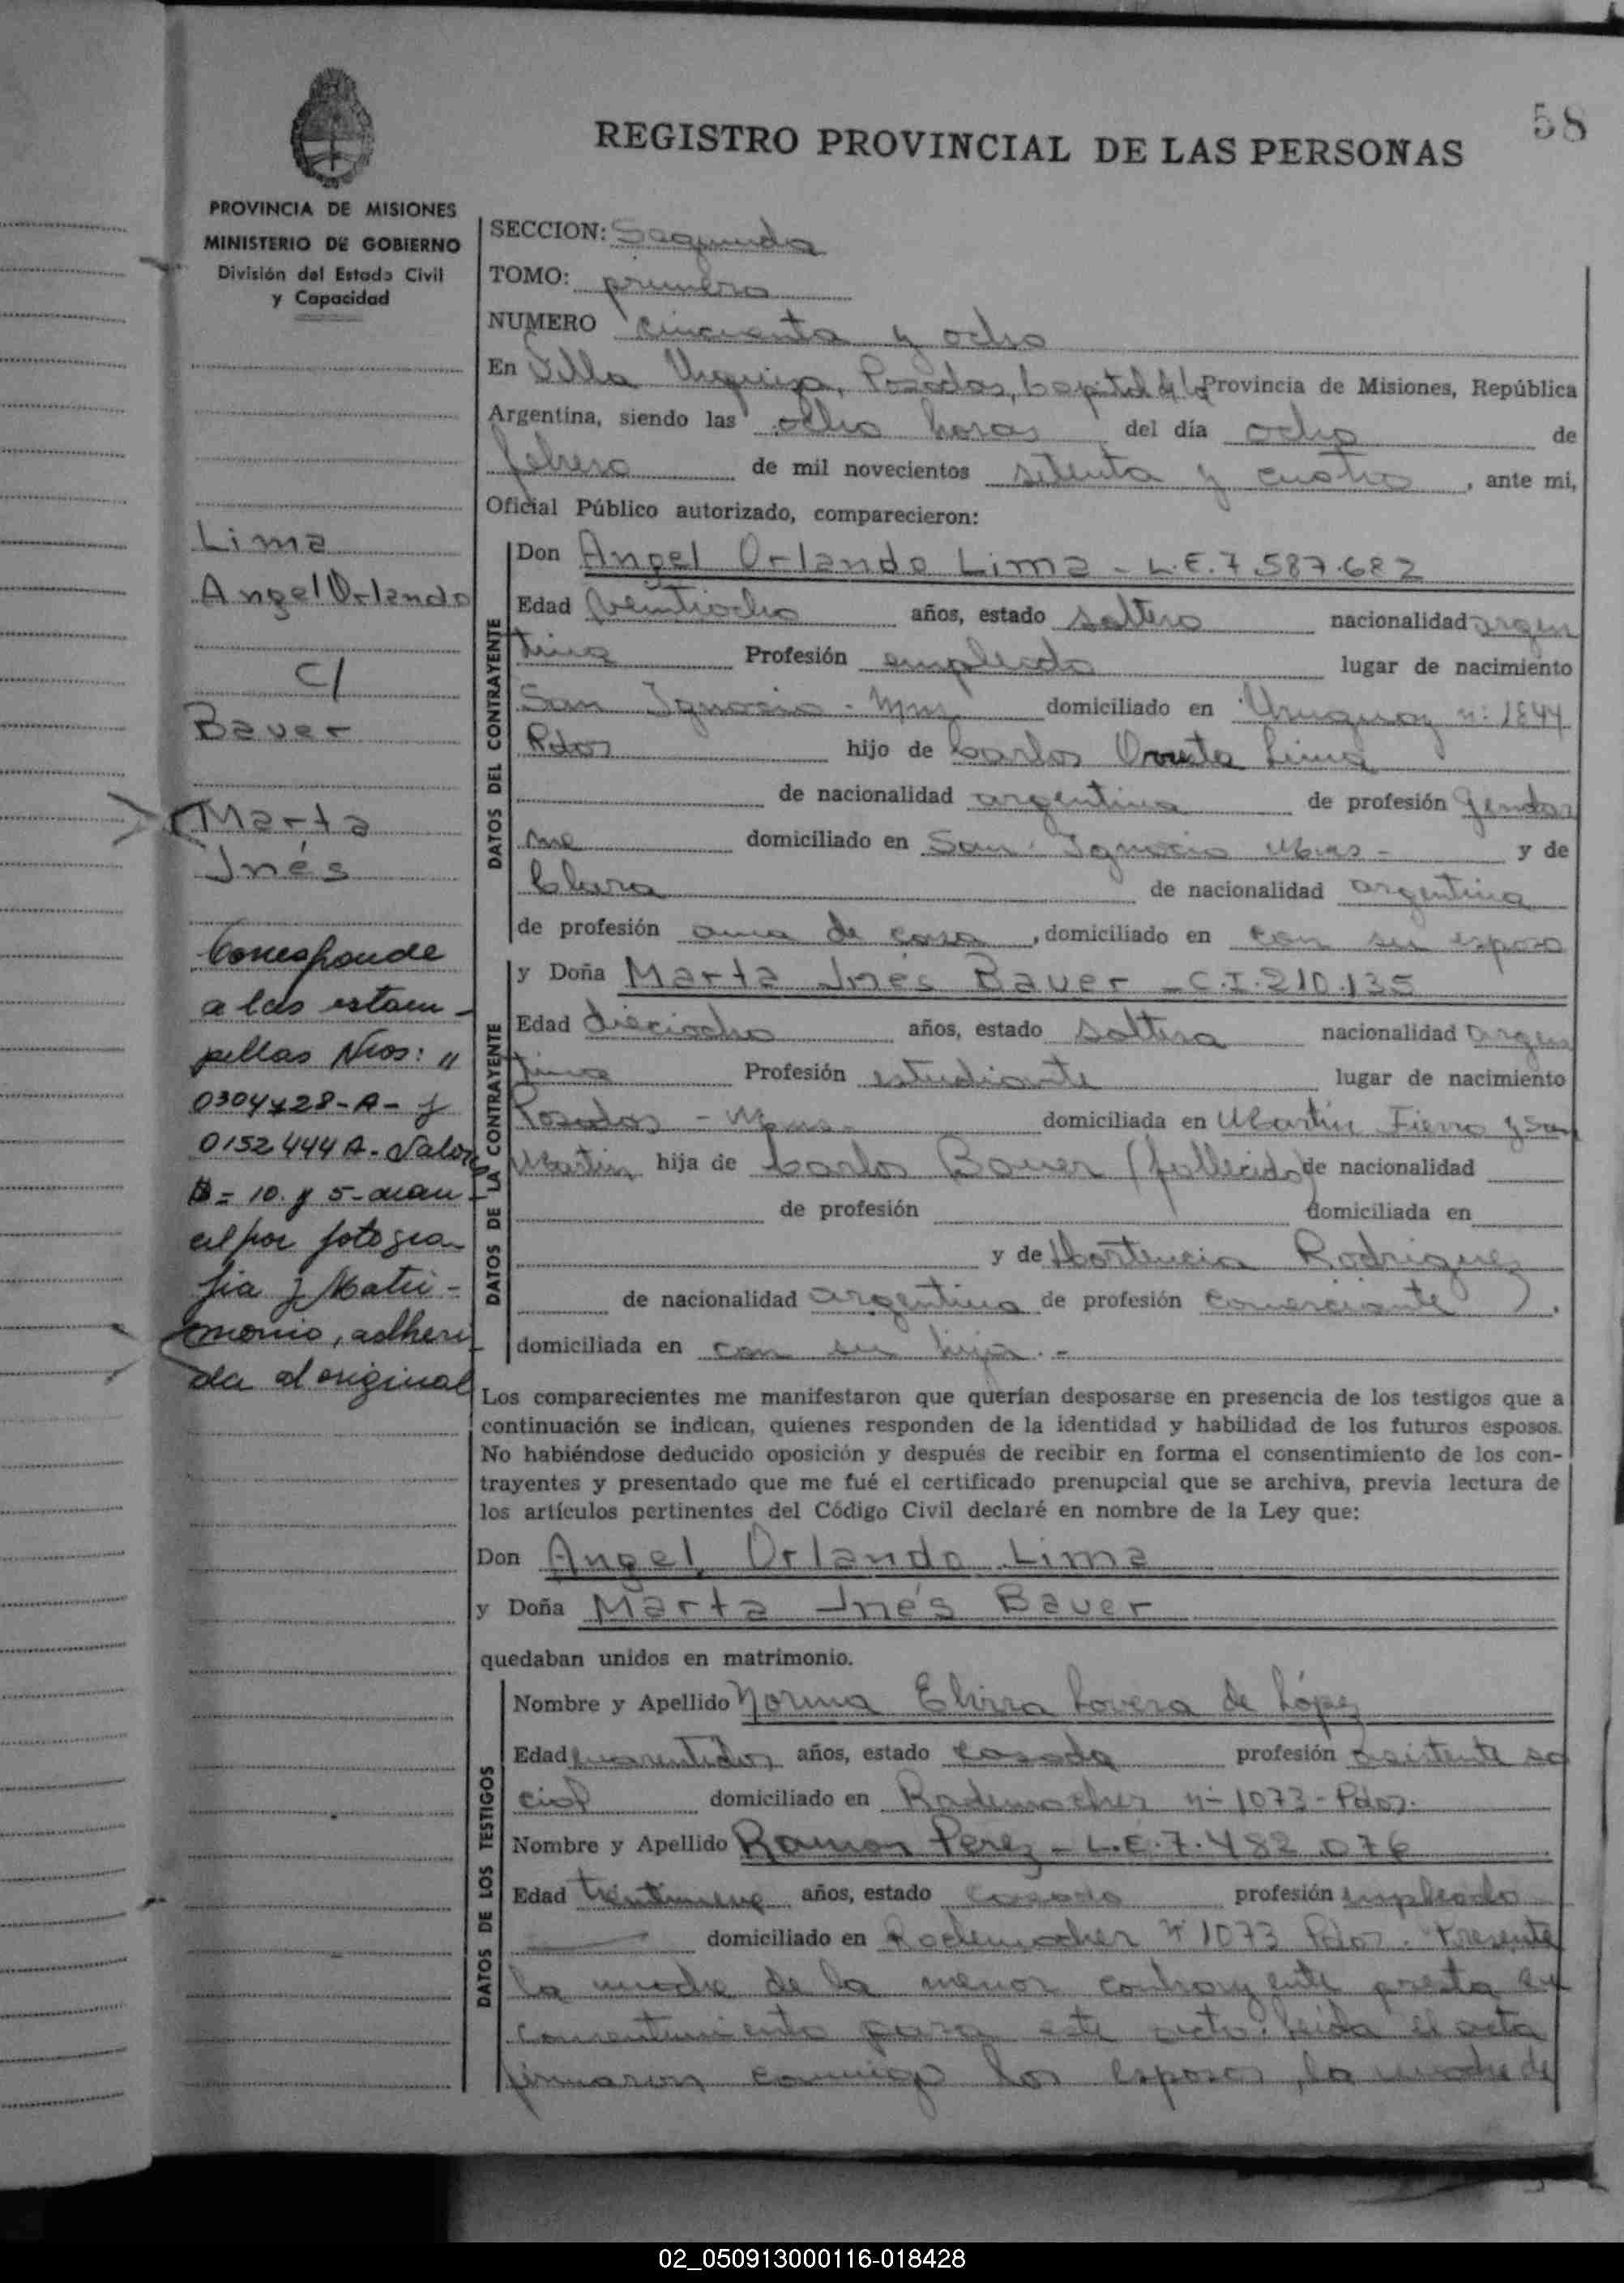 58
REGISTRO PROVINCIAL DE LAS PERSONAS
PROVINCIA DE MISIONES
MINISTERIO DE GOBIERNO
División del Estado Civil
y Capacidad
Lima
Angel Orlando
c/
Bauer
Marta
Inés
Corresponde
a las estam-
pillas Nros: "
0304728-A- y
0152444 A- Valor
$= 10. y 5-
fotogra-
fia y Matri-
monio, adheri
da al original
SECCION: Segunda
TOMO: primero
NUMERO cincuenta y ocho
En Villa Urquiza, Posadas, Capital de la Provincia de Misiones, República
Argentina, siendo las ocho horas del día ocho de
febrero de mil novecientos setenta y cuatro, ante mi,
Oficial Público autorizado, comparecieron:
DATOS DEL CONTRAYENTE
Don Angel Orlando Lima - L.E. 7.587.682
Edad veintiocho años, estado soltero nacionalidad argen
tina Profesión empleado lugar de nacimiento
San Ignacio - Mnes domiciliado en Uruguay nº 1844
Pdas hijo de Carlos Lima
de nacionalidad argentina de profesión Gendar
me domiciliado en San Ignacio Mnes - y de
Clara de nacionalidad argentina
de profesión ama de casa, domiciliado en con su esposo
DATOS DE LA CONTRAYENTE
y Doña Marta Inés Bauer - C.I. 210.135
Edad dieciocho años, estado soltera nacionalidad argen
tina Profesión estudiante lugar de nacimiento
Posadas - Mnes. domiciliada en Martín Fierro y San
Martin hija de Carlos Bauer (fallecido) de nacionalidad
de profesión domiciliada en
y de Hortencia Rodriguez
de nacionalidad argentina de profesión comerciante,
domiciliada en con su hija.-
Los comparecientes me manifestaron que querían desposarse en presencia de los testigos que a
continuación se indican, quienes responden de la identidad y habilidad de los futuros esposos.
No habiéndose deducido oposición y después de recibir en forma el consentimiento de los con-
trayentes y presentado que me fué el certificado prenupcial que se archiva, previa lectura de
los artículos pertinentes del Código Civil declaré en nombre de la Ley que:
Don Angel Orlando Lima
y Doña Marta Inés Bauer
quedaban unidos en matrimonio.
DATOS DE LOS TESTIGOS
Nombre y Apellido Norma Elvira Lovera de López
Edad cuarentidos años, estado casada profesión asistente so
cial domiciliado en Rademacher nº 1073 - Pdas.
Nombre y Apellido Ramon Perez - L.E. 7.482.076
Edad treintinueve años, estado casado profesión empleado
domiciliado en Rademacher nº 1073 Pdas. Presente
la madre de la menor contrayente presta su
consentimiento para este acto. Leída el acta
firmaron conmigo los esposos, la madre de
02_050913000116-018428